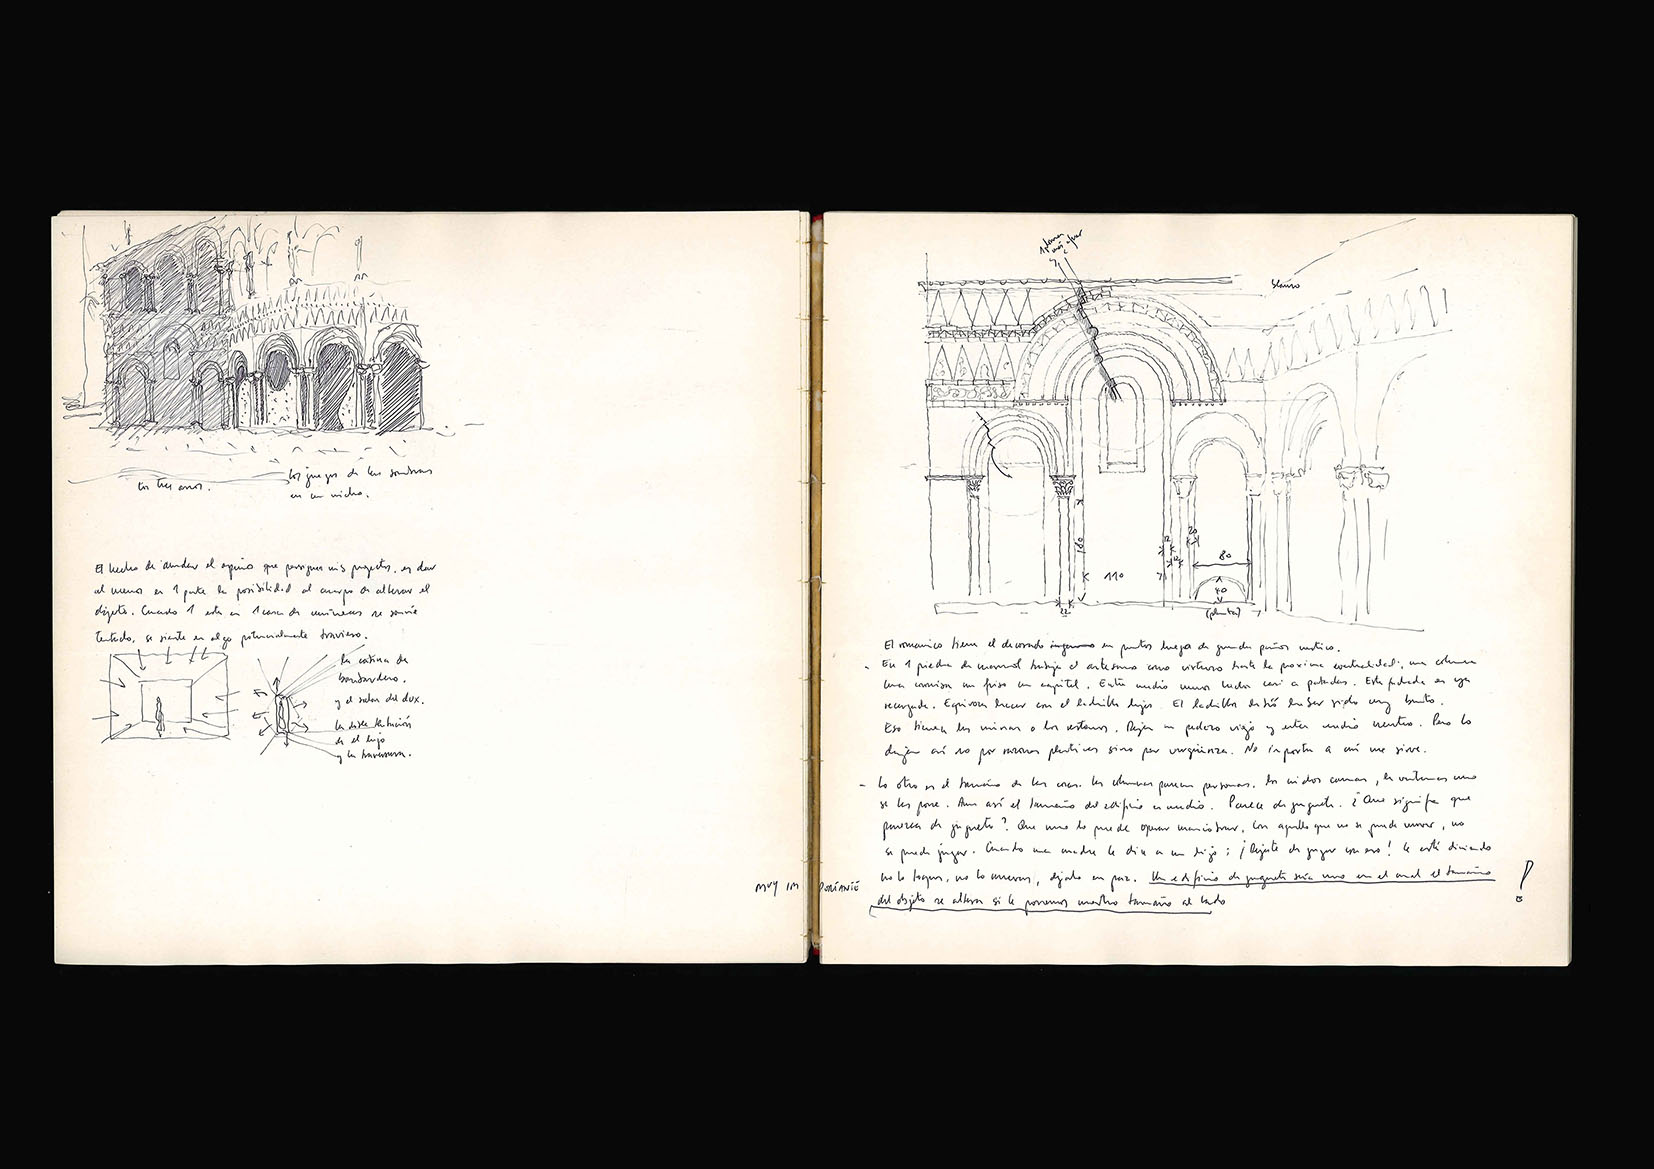 los tres arcos.
los juegos de las sombras
en un nicho.
El hecho de ahondar el espacio que persiguen mis proyectos, es dar
al menos en 1 parte la posibilidad al cuerpo de alterar el
objeto. Cuando 1 está en 1 casa de muñecas se siente
tentado, se siente en algo potencialmente travieso.
la cabina de
bombardero.
y el salón del dux.
la disolución
de el lujo
y la travesura.
1 planta
blanco
180
110
20
80
40
22
(planta)
El románico tiene el decorado en puntos luego da grandes paños vacíos.
- En 1 piedra de mármol trabaja el artesano como virtuoso hasta la próxima centralidad, una columna
una cornisa un friso un capitel. Entre medio muros hechos casi a patadas. Esta fachada es ya
recargada. Equivoca hacer con el ladrillo lujo. El ladrillo debió haber sido muy bruto.
Eso tienen las ruinas o los restauros. Dejan un pedazo viejo y entre medio neutro. Pero lo
dejan así no por razones plásticas sino por vergüenza. No importa a mí me sirve.
- Lo otro es el tamaño de las cosas. las columnas parecen personas. los nichos camas, las ventanas uno
se las pone. Aun así el tamaño del edificio es medio. Parece de juguete. ¿Que significa que
parezca de juguete? Que uno lo puede operar maniobrar, con aquello que no se puede mover, no
se puede jugar. Cuando una madre le dice a un hijo: ¡Déjate de jugar con eso! le está diciendo
no lo toques, no lo muevas, déjalo en paz. Un edificio de juguete sería uno en el cual el tamaño
del objeto se altera si le ponemos nuestro tamaño al lado
MUY IMPORTANTE
!